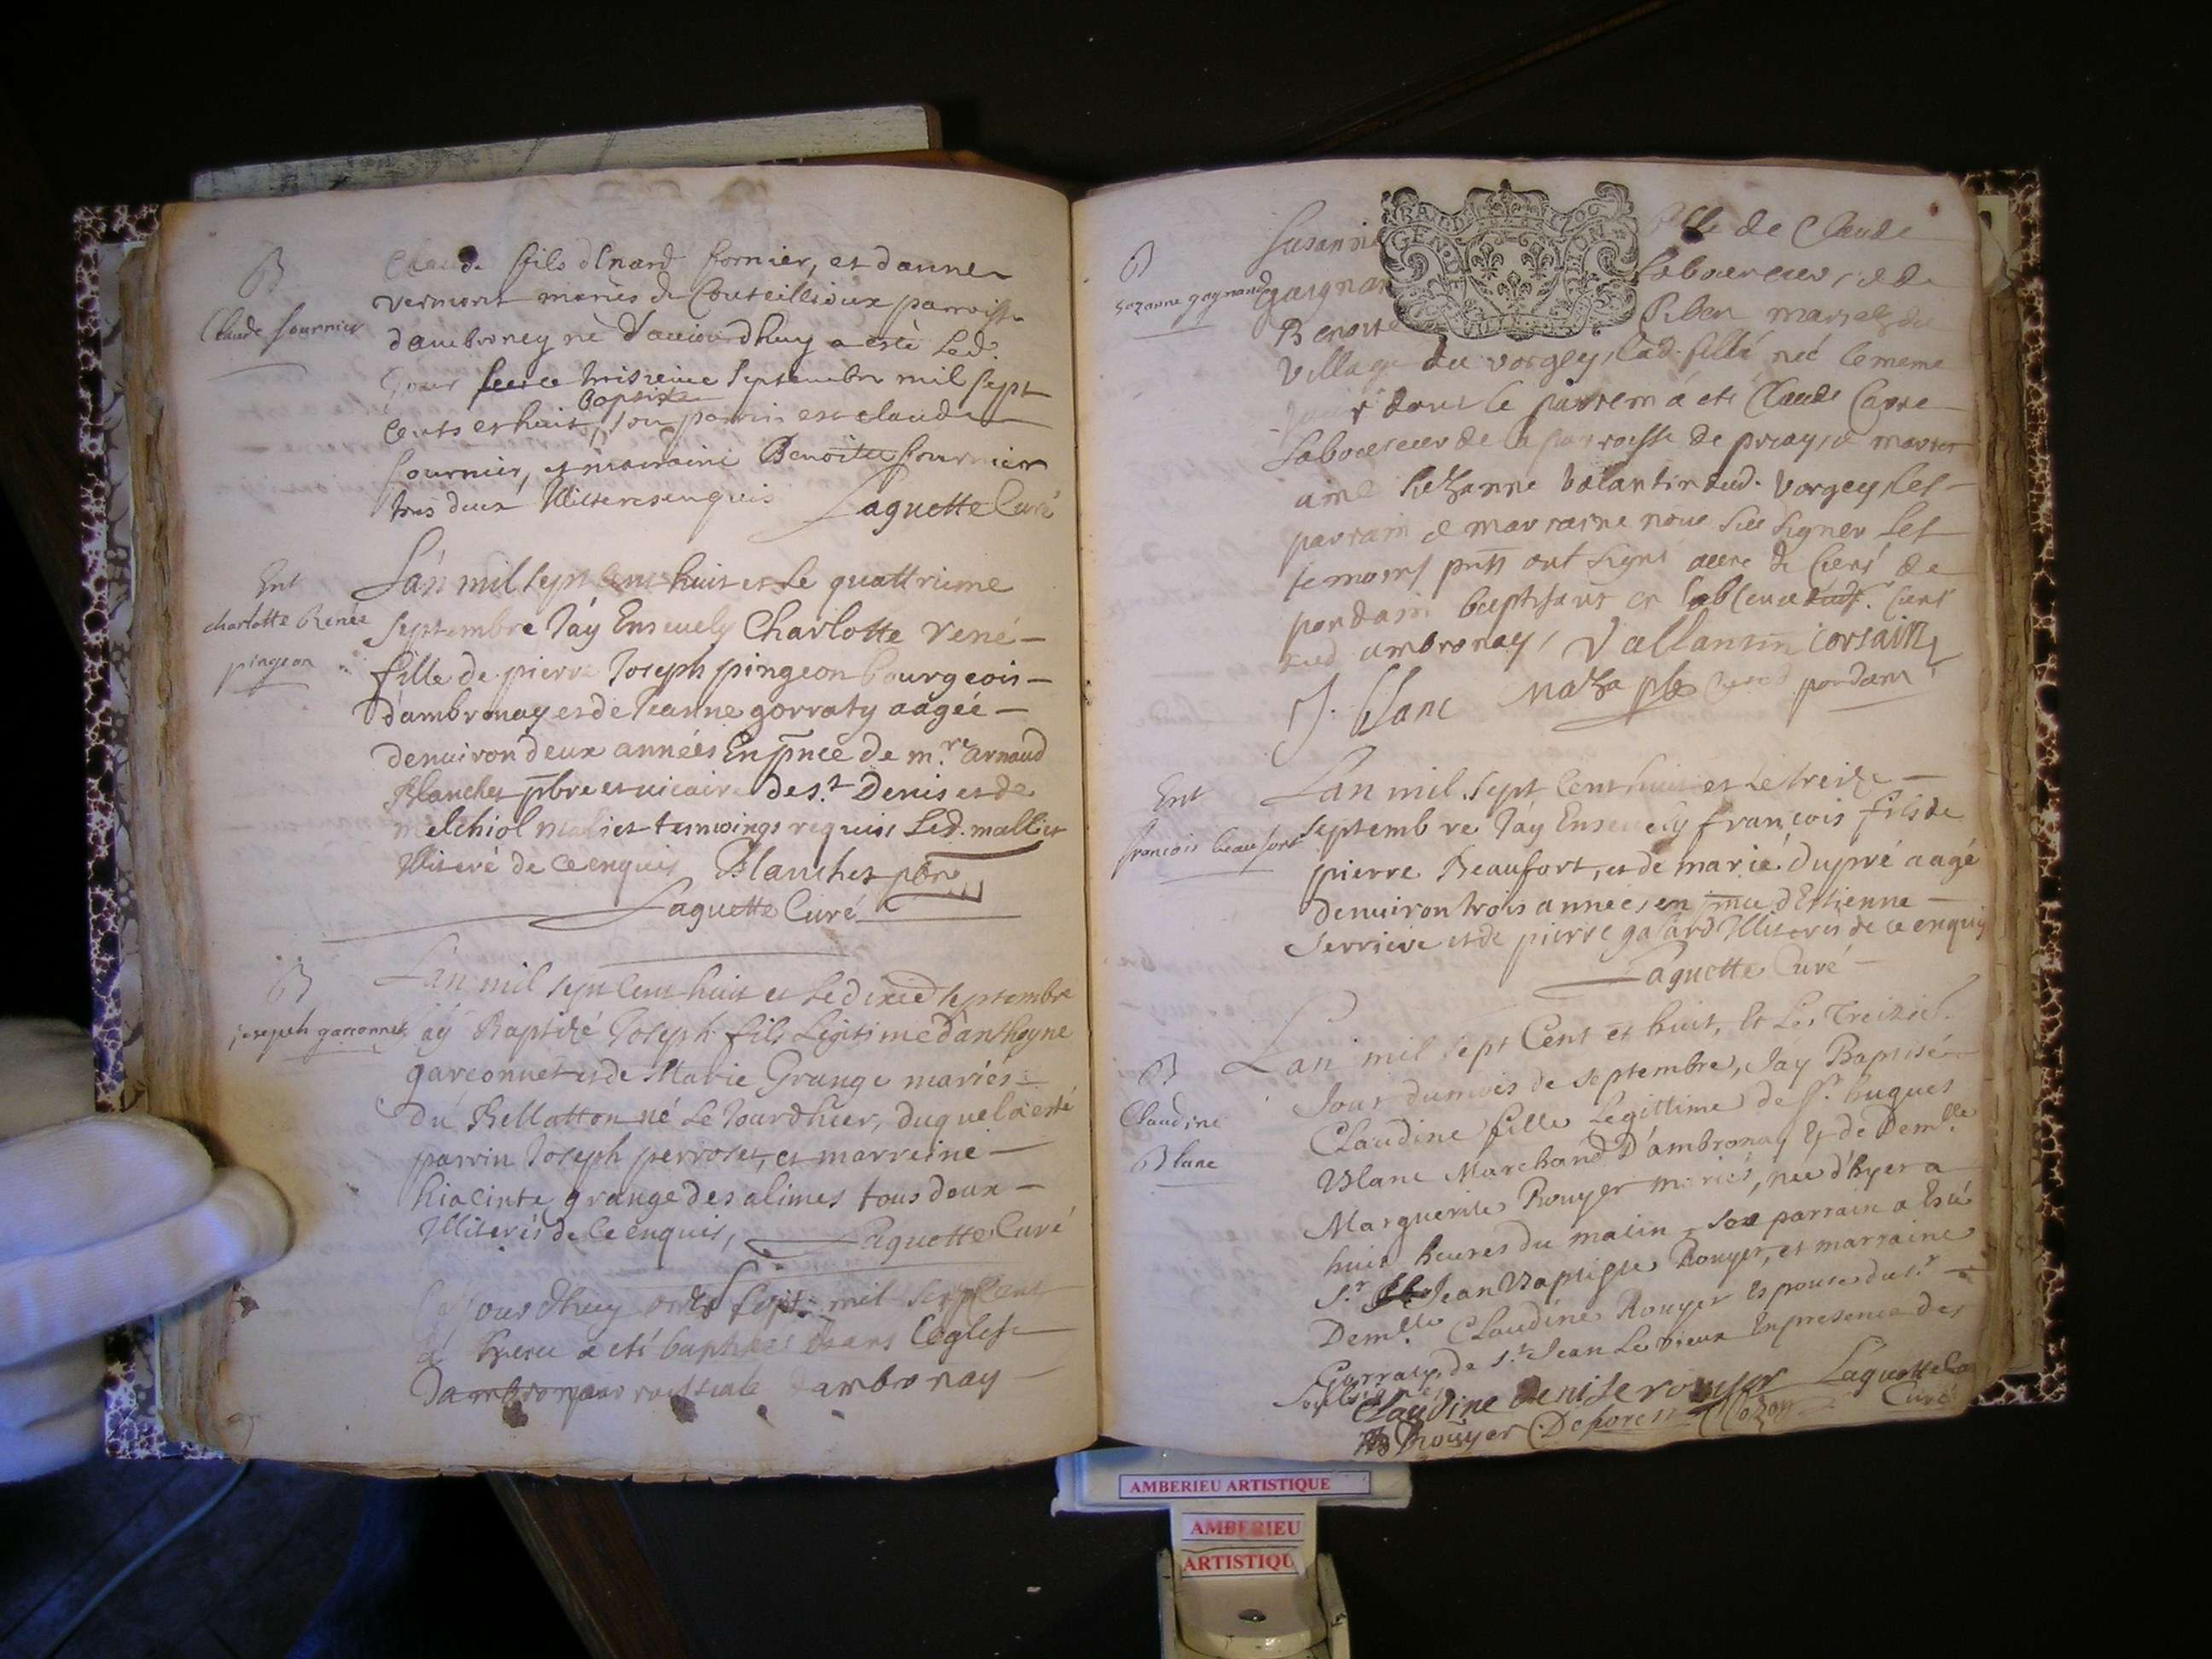 B
Claude fournier
Claude fils d'Enard fornier, et danne
vermont mariés de Couteillieux parroisse
dambroney né d'aujourdhuy a esté Led.
jour troisieme Septembre mil sept
baptizé
Cents et huit, son parrin est claude
fournier, et marraine Benoîte fournier
tous deux Illiteres enquis Laguette Curé
Ent
charlotte Renée
pingeon
L'an mil sept cent huit et Le quattrieme
Septembre J'ay Ensevely Charlotte rené
fille de pierre Joseph pingeon bourgeois
d'ambronay et de Jeanne gorraty aagée
denviron deux années En pnce de m.re arnaud
Blanchet pbre et vicaire de s.t Denis et de
melchiol maliet temoings requis Led. malliet
Illiteré de ce enquis Blanchet pbre
Laguette Curé
B
joseph garconnet
L'an mil sept cent huit et Le septembre
J'ay Baptizé Joseph fils Legitime d'anthoyne
garconnet et de Marie Grange mariés
du Bellatton né Le Jourdhier, duquel a esté
parrin Joseph perroset, et marreine
hiacinte grange des alimes tous deux
Illiterés de Ce enquis, Laguette Curé
aujourdhuy sept mil sept Cent
a été baptisée dans L'eglise
parroissiale dambronay
B
Suzanne gagnand
Susanne fille de Claude
gaignan laboureur, et de
Benoite mariez du
village du vorgey, lad. fille née le meme
jour dont le parrein a eté Claude Carre
laboureur de la parroisse de priay, et marr
aine Suzanne Valantin dud. Vorgey, les
parrain et marraine nont sceu signer les
temoins pnts ont signé avec le Curé de
pondain baptisant en l'absence dud. Sr. Curé
dud ambronay, Vallantin corsain
J. blanc pbr Curé pondain
Ent
francois beaufort
L'an mil sept Cent huit et Le treize
septembre J'ay Ensevely francois fils de
pierre Beaufort, et de marie dupré aagé
denviron trois années, en pnce d'Estienne
Serriere et de pierre gasard Illiterés de ce enquis
Laguette Curé
B
Claudine
Blanc
L'an mil sept Cent et huit, et Le Treizie.
Jour du mois de septembre, J'ay Baptisé
Claudine fille Legittime de Sr. hugues
Blanc Marchand D'ambronay et de Dem.lle
Marguerite Rouyer mariés, née d'hyer a
huit heures du matin, son parrain a Esté
S.r Jean Baptiste Rouyer, et marraine
Dem.lle Claudine Rouyer Espouse du s.r
Garraty, de S.t Jean Le vieux En presence des
Claudine denise rouyer Laguette
Rouyer Cozon Curé
GENERALITE DE DIJON
AMBERIEU ARTISTIQUE
AMBERIEU
ARTISTIQU